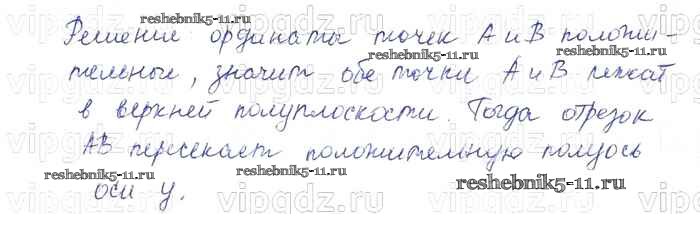 Решение ординаты точек А и В положи-
тельные, значит обе точки А и В лежат
в верхней полуплоскости. Тогда отрезок
АВ пересекает положительную полуось
оси у.
reshebnik5-11.ru
reshebnik5-11.ru
reshebnik5-11.ru
reshebnik5-11.ru
reshebnik5-11.ru
reshebnik5-11.ru
reshebnik5-11.ru
vipgdz.ru
vipgdz.ru
vipgdz.ru
vipgdz.ru